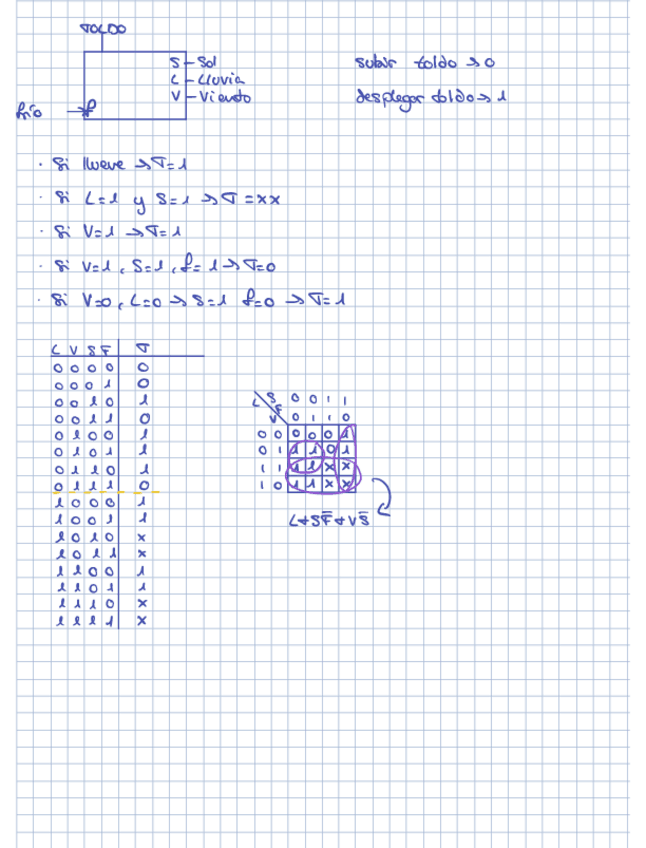 TOLDO
S - Sol
L - Lluvia
V - Viento
frío → f
subir toldo → 0
desplegar toldo → 1
· Si llueve → T=1
· Si L=1 y S=1 → T=xx
· Si V=1 → T=1
· Si V=1, S=1, f=1 → T=0
· Si V=0, L=0 → S=1 f=0 → T=1
L V S F T
0 0 0 0 0
0 0 0 1 0
0 0 1 0 1
0 0 1 1 0
0 1 0 0 1
0 1 0 1 1
0 1 1 0 1
0 1 1 1 0
1 0 0 0 1
1 0 0 1 1
1 0 1 0 x
1 0 1 1 x
1 1 0 0 1
1 1 0 1 1
1 1 1 0 x
1 1 1 1 x
L S 0 0 1 1
V F 0 1 1 0
0 0 0 0 0 1
0 1 1 1 0 1
1 1 1 1 x x
1 0 1 1 x x
L+SF̅+VS̅